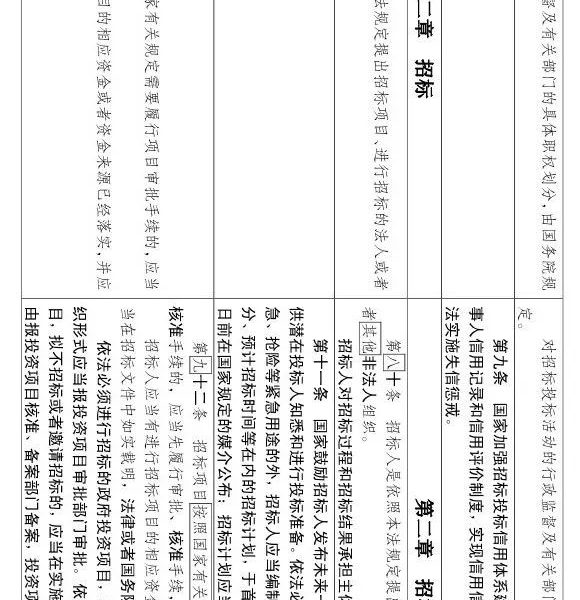 督及有关部门的具体职权划分，由国务院规
二章 招标
法规定提出招标项目、进行招标的法人或者
家有关规定需要履行项目审批手续的，应当
目的相应资金或者资金来源已经落实，并应
定。
对招标投标活动的行政监督及有关部门
第九条 国家加强招标投标信用体系建
事人信用记录和信用评价制度，实现信用信
法实施失信惩戒。
第二章 招
第八十条 招标人是依照本法规定提
者其他非法人组织。
招标人对招标过程和招标结果承担主
第十一条 国家鼓励招标人发布未来一
供潜在投标人知悉和进行投标准备。依法必
急、抢险等紧急用途的外，招标人应当编制
分、预计招标时间等在内的招标计划，于首
日前在国家规定的媒介公布；招标计划应当
第九十二条 招标项目按照国家有关
核准手续的，应当先履行审批、核准手续，
招标人应当有进行招标项目的相应资金
当在招标文件中如实载明，法律或者国务院
依法必须进行招标的政府投资项目，
织形式应当报投资项目审批部门审批。依
目，拟不招标或者邀请招标的，应当在实施
由报投资项目核准、备案部门备案，投资项